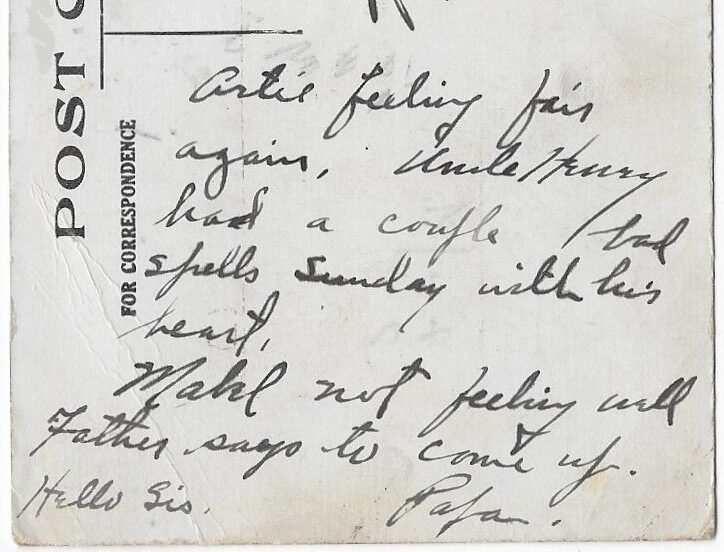 POST C
FOR CORRESPONDENCE
Artie feeling fair
again, Uncle Henry
had a couple bad
spells Sunday with his
heart,
Mabel not feeling well
Father says to come up.
Hello Sis. Papa.